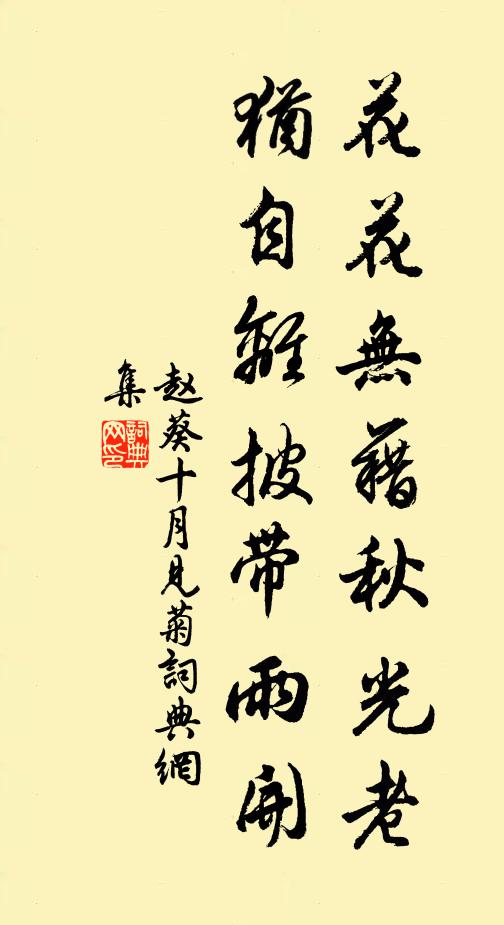 花花無藉秋光老
猶自離披帶雨開
赵葵十月見菊詞典網
集
詞典
网印